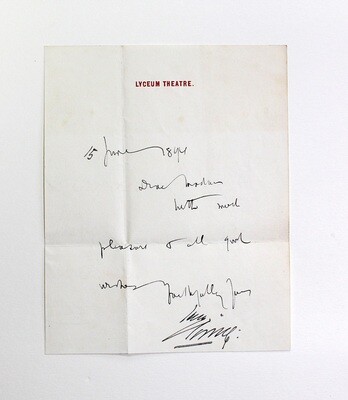 LYCEUM THEATRE.
15 June 1894
Dear Madam
With much
pleasure & all good
wishes Faithfully Yours
Henry
Irving